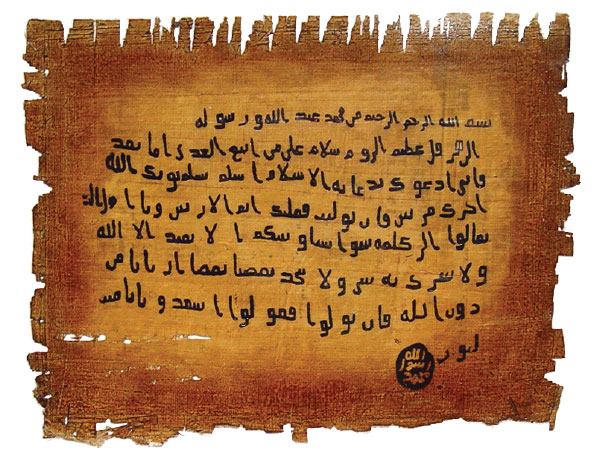 بسم الله الرحمن الرحيم من محمد عبد الله ورسوله
الى هرقل عظيم الروم سلام على من اتبع الهدى اما بعد
فانى ادعوك بدعاية الاسلام اسلم تسلم يوتك الله
اجرك مرتين فان توليت فعليك اثم الاريسين ويا اهل
تعالوا الى كلمة سوا بيننا وبينكم الا نعبد الا الله
ولا نشرك به شيا ولا يتخذ بعضنا بعضا اربابا من
دون الله فان تولوا فقولوا اشهدوا بانا مسـ
لمون
الله
رسول
محمد